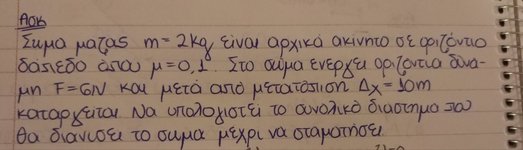 Ασκ
Σωμα μαζας m=2kg είναι αρχικά ακίνητο σε οριζόντιο
δάπεδο όπου μ=0,1. Στο σώμα ενεργεί οριζόντια δύνα-
μη F=6N και μετά από μετατόπιση Δx=10m
καταργείται. Να υπολογιστεί το συνολικό διαστημα που
θα διανυσει το σωμα μεχρι να σταματησει